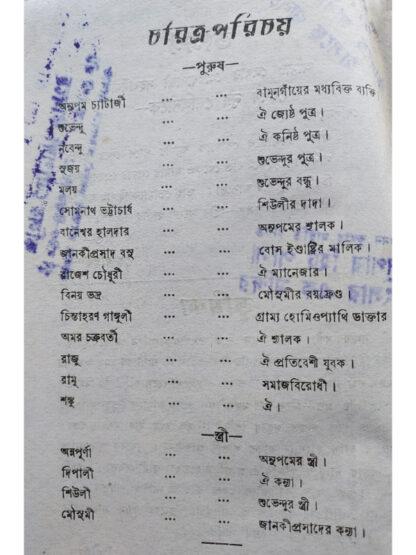 চরিত্রপরিচয়
—পুরুষ—
অনুপম চ্যাটার্জী ... ... বামুনগাঁয়ের মধ্যবিত্ত ব্যক্তি
শুভেন্দু ... ... ঐ জ্যেষ্ঠ পুত্র।
নবেন্দু ... ... ঐ কনিষ্ঠ পুত্র।
সুজয় ... ... শুভেন্দুর পুত্র।
মলয় ... ... শুভেন্দুর বন্ধু।
সোমনাথ ভট্টাচার্য ... ... শিউলীর দাদা।
বানেশ্বর হালদার ... ... অনুপমের শ্যালক।
জানকীপ্রসাদ বসু ... ... বোস ইণ্ডাষ্ট্রির মালিক।
রাজেশ চৌধুরী ... ... ঐ ম্যানেজার।
বিনয় ভদ্র ... ... মৌসুমীর বয়ফ্রেণ্ড।
চিন্তাহরণ গাঙ্গুলী ... ... গ্রাম্য হোমিওপ্যাথি ডাক্তার
অমর চক্রবর্তী ... ... ঐ শ্যালক।
রাজু ... ... ঐ প্রতিবেশী যুবক।
রামু ... ... সমাজবিরোধী।
শঙ্কু ... ... ঐ।
—স্ত্রী—
অন্নপূর্ণা ... ... অনুপমের স্ত্রী।
দিপালী ... ... ঐ কন্যা।
শিউলী ... ... শুভেন্দুর স্ত্রী।
মৌসুমী ... ... জানকীপ্রসাদের কন্যা।